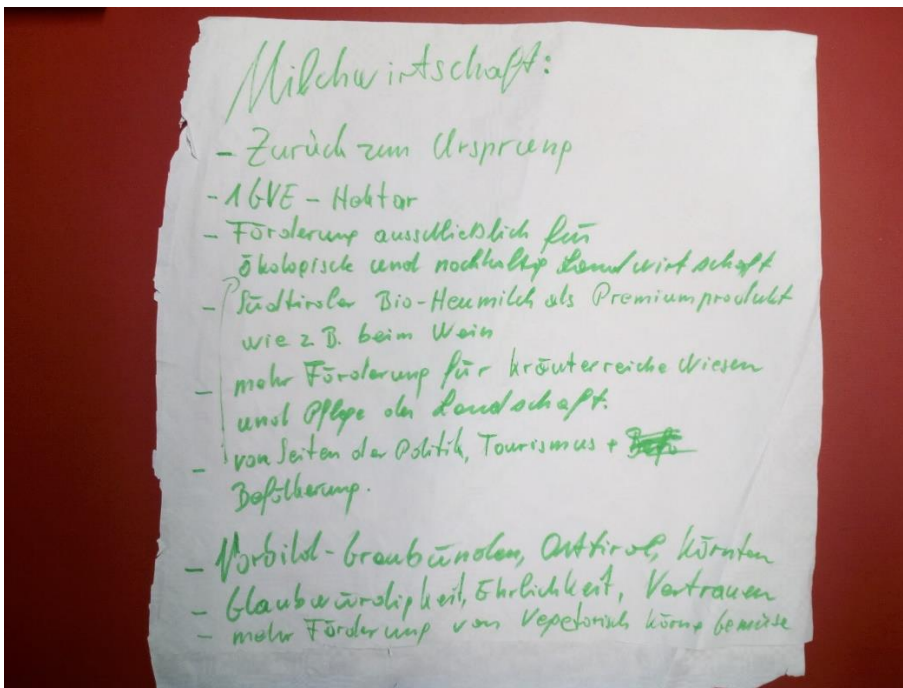 Milchwirtschaft:
- Zurück zum Ursprung
- 1 GVE - Hektar
- Förderung ausschließlich für
ökologische und nachhaltig Landwirtschaft
- Südtiroler Bio-Heumilch als Premiumprodukt
wie z.B. beim Wein
- mehr Förderung für kräuterreiche Wiesen
und Pflege der Landschaft.
- von Seiten der Politik, Tourismus +
Befölkerung.
- Vorbild - Graubünden, Osttirol, Kärnten
- Glaubwürdigkeit, Ehrlichkeit, Vertrauen
- mehr Förderung von Vegetarisch Gemüse